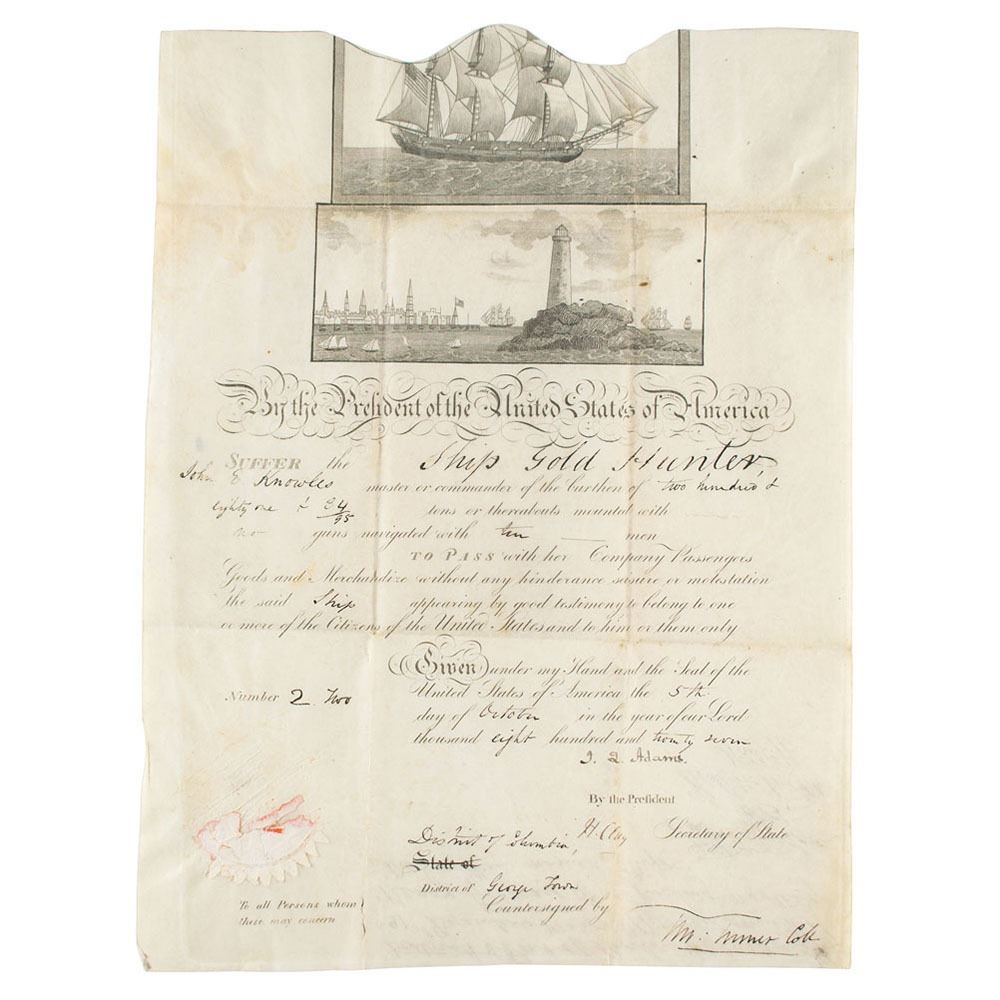 By the President of the United States of America
SUFFER the Ship Gold Hunter,
John E Knowles master or commander of the burthen of two hundred &
eighty one & 84/95 tons or thereabouts mounted with
no guns navigated with ten men
TO PASS with her Company Passengers
Goods and Merchandize without any hinderance seisure or molestation
the said Ship appearing by good testimony to belong to one
or more of the Citizens of the United States and to him or them only
Given under my Hand and the Seal of the
Number 2 Two United States of America the 5th
day of October in the year of our Lord
thousand eight hundred and twenty seven
J. Q. Adams.
By the President
H. Clay Secretary of State
District of Columbia,
State of
District of George Town
Countersigned by
Turner Coll
To all Persons whom
these may concern